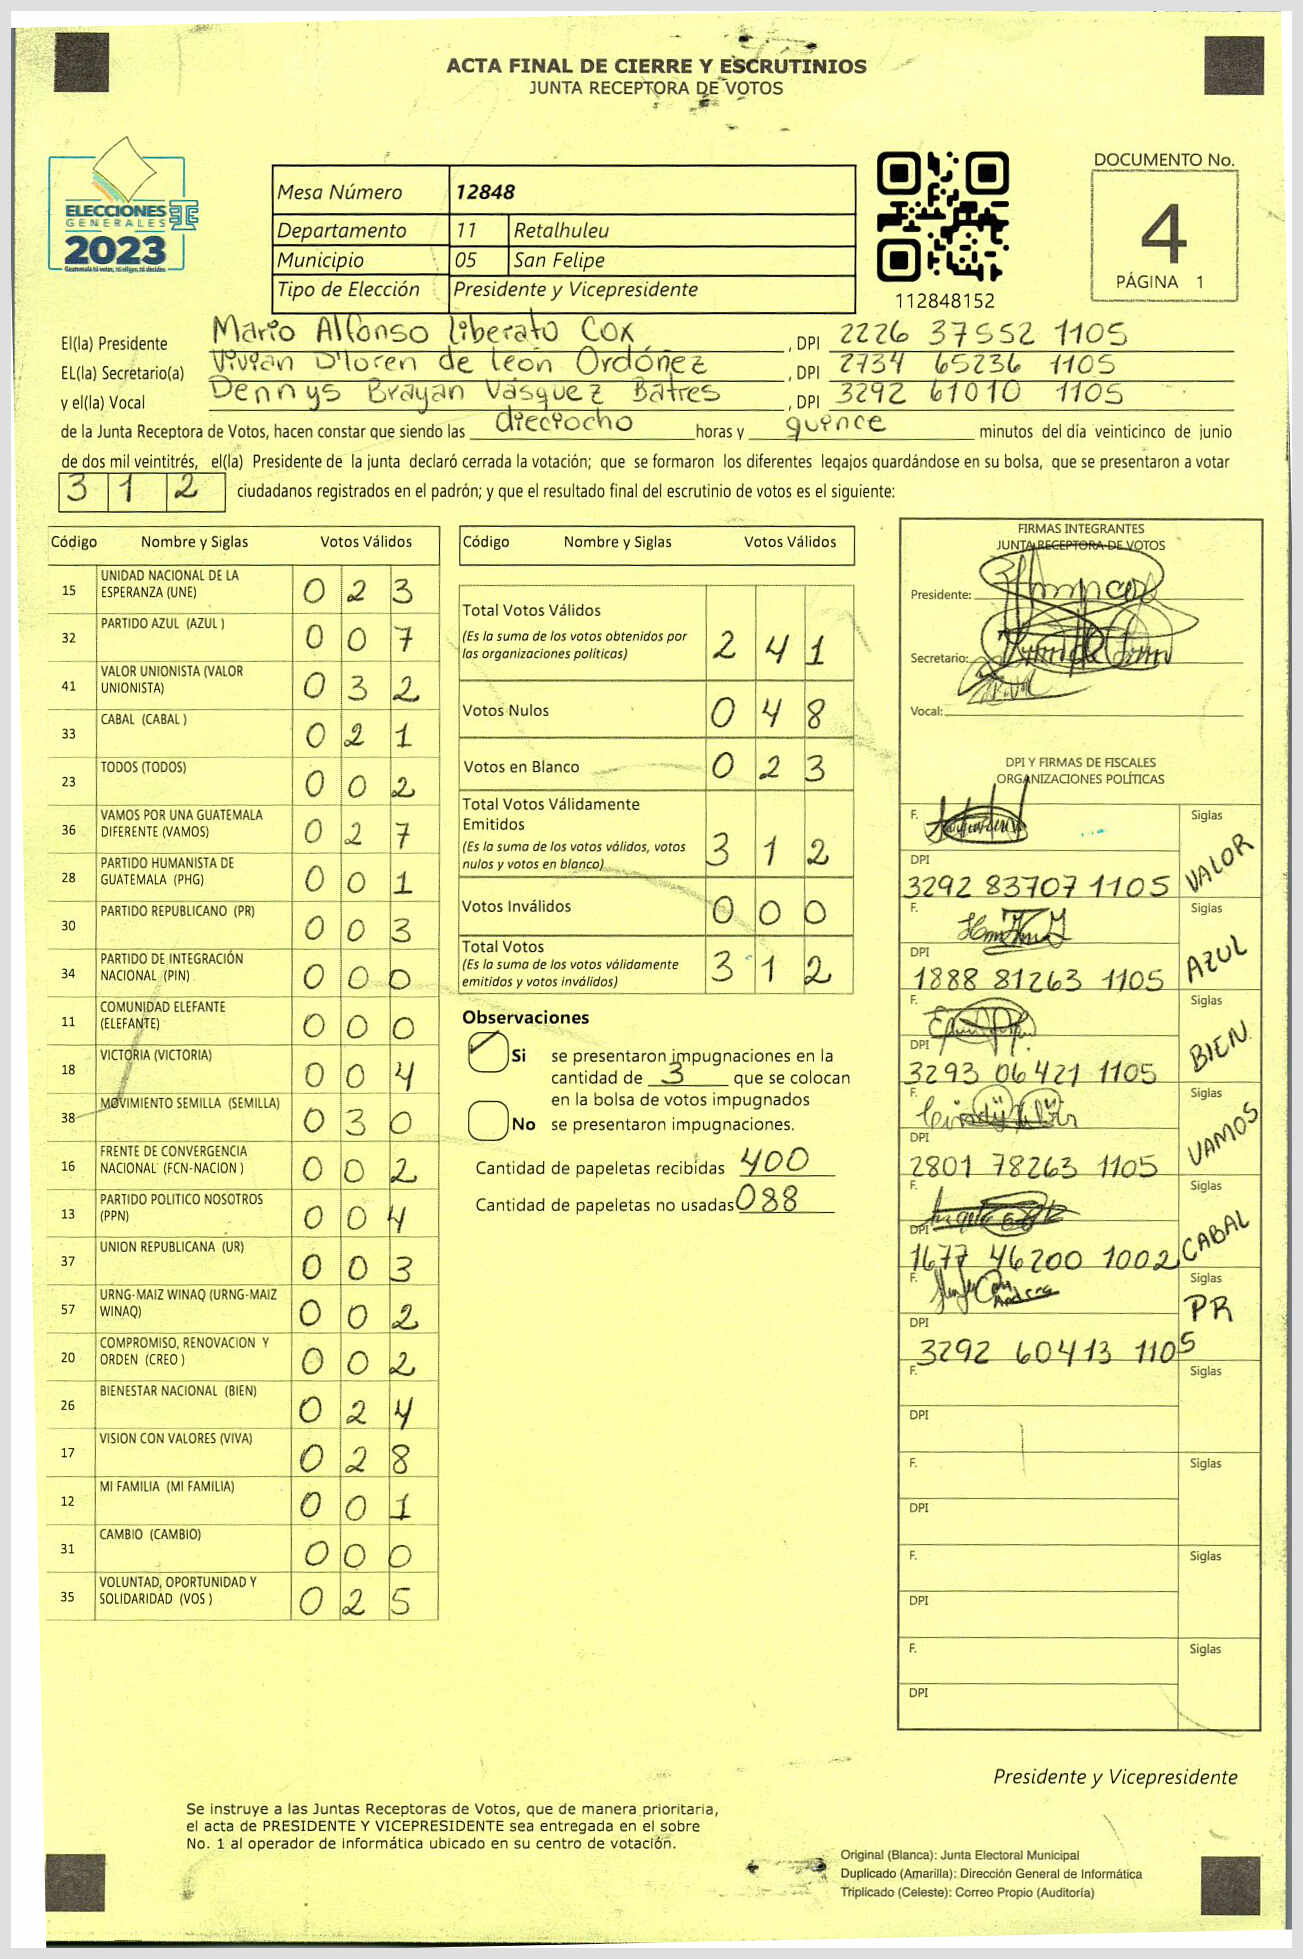 ACTA FINAL DE CIERRE Y ESCRUTINIOS
JUNTA RECEPTORA DE VOTOS
ELECCIONES
GENERALES
2023
Guatemala tú votas, tú eliges, tú decides
Mesa Número 12848
Departamento 11 Retalhuleu
Municipio 05 San Felipe
Tipo de Elección Presidente y Vicepresidente
112848152
DOCUMENTO No.
4
PÁGINA 1
El(la) Presidente Mario Alfonso Liberato Cox, DPI 2226 37552 1105
EL(la) Secretario(a) Vivian D'loren de león Ordóñez, DPI 2734 65236 1105
y el(la) Vocal Dennys Brayan Vásquez Batres, DPI 3292 61010 1105
de la Junta Receptora de Votos, hacen constar que siendo las dieciocho horas y quince minutos del día veinticinco de junio
de dos mil veintitrés, el(la) Presidente de la junta declaró cerrada la votación; que se formaron los diferentes legajos guardándose en su bolsa, que se presentaron a votar
312 ciudadanos registrados en el padrón; y que el resultado final del escrutinio de votos es el siguiente:
Código Nombre y Siglas Votos Válidos
15 UNIDAD NACIONAL DE LA ESPERANZA (UNE) 0 2 3
32 PARTIDO AZUL (AZUL ) 0 0 7
41 VALOR UNIONISTA (VALOR UNIONISTA) 0 3 2
33 CABAL (CABAL ) 0 2 1
23 TODOS (TODOS) 0 0 2
36 VAMOS POR UNA GUATEMALA DIFERENTE (VAMOS) 0 2 7
28 PARTIDO HUMANISTA DE GUATEMALA (PHG) 0 0 1
30 PARTIDO REPUBLICANO (PR) 0 0 3
34 PARTIDO DE INTEGRACIÓN NACIONAL (PIN) 0 0 0
11 COMUNIDAD ELEFANTE (ELEFANTE) 0 0 0
18 VICTORIA (VICTORIA) 0 0 4
38 MOVIMIENTO SEMILLA (SEMILLA) 0 3 0
16 FRENTE DE CONVERGENCIA NACIONAL (FCN-NACION ) 0 0 2
13 PARTIDO POLITICO NOSOTROS (PPN) 0 0 4
37 UNION REPUBLICANA (UR) 0 0 3
57 URNG-MAIZ WINAQ (URNG-MAIZ WINAQ) 0 0 2
20 COMPROMISO, RENOVACION Y ORDEN (CREO ) 0 0 2
26 BIENESTAR NACIONAL (BIEN) 0 2 4
17 VISION CON VALORES (VIVA) 0 2 8
12 MI FAMILIA (MI FAMILIA) 0 0 1
31 CAMBIO (CAMBIO) 0 0 0
35 VOLUNTAD, OPORTUNIDAD Y SOLIDARIDAD (VOS ) 0 2 5
Código Nombre y Siglas Votos Válidos
Total Votos Válidos
(Es la suma de los votos obtenidos por
las organizaciones políticas) 2 4 1
Votos Nulos 0 4 8
Votos en Blanco 0 2 3
Total Votos Válidamente
Emitidos
(Es la suma de los votos válidos, votos
nulos y votos en blanco) 3 1 2
Votos Inválidos 0 0 0
Total Votos
(Es la suma de los votos válidamente
emitidos y votos inválidos) 3 1 2
Observaciones
Si se presentaron impugnaciones en la
cantidad de 3 que se colocan
en la bolsa de votos impugnados
No se presentaron impugnaciones.
Cantidad de papeletas recibidas 400
Cantidad de papeletas no usadas 088
FIRMAS INTEGRANTES
JUNTA RECEPTORA DE VOTOS
Presidente:
Secretario:
Vocal:
DPI Y FIRMAS DE FISCALES
ORGANIZACIONES POLÍTICAS
F. Siglas VALOR
DPI
3292 83707 1105
F. Siglas AZUL
DPI
1888 81263 1105
F. Siglas BIEN
DPI
3293 06421 1105
F. Siglas VAMOS
DPI
2801 78263 1105
F. Siglas CABAL
DPI
1677 46200 1002
F. Siglas PR
DPI
3292 60413 1105
F. Siglas
DPI
F. Siglas
DPI
F. Siglas
DPI
F. Siglas
DPI
Presidente y Vicepresidente
Se instruye a las Juntas Receptoras de Votos, que de manera prioritaria,
el acta de PRESIDENTE Y VICEPRESIDENTE sea entregada en el sobre
No. 1 al operador de informática ubicado en su centro de votación.
Original (Blanca): Junta Electoral Municipal
Duplicado (Amarilla): Dirección General de Informática
Triplicado (Celeste): Correo Propio (Auditoría)